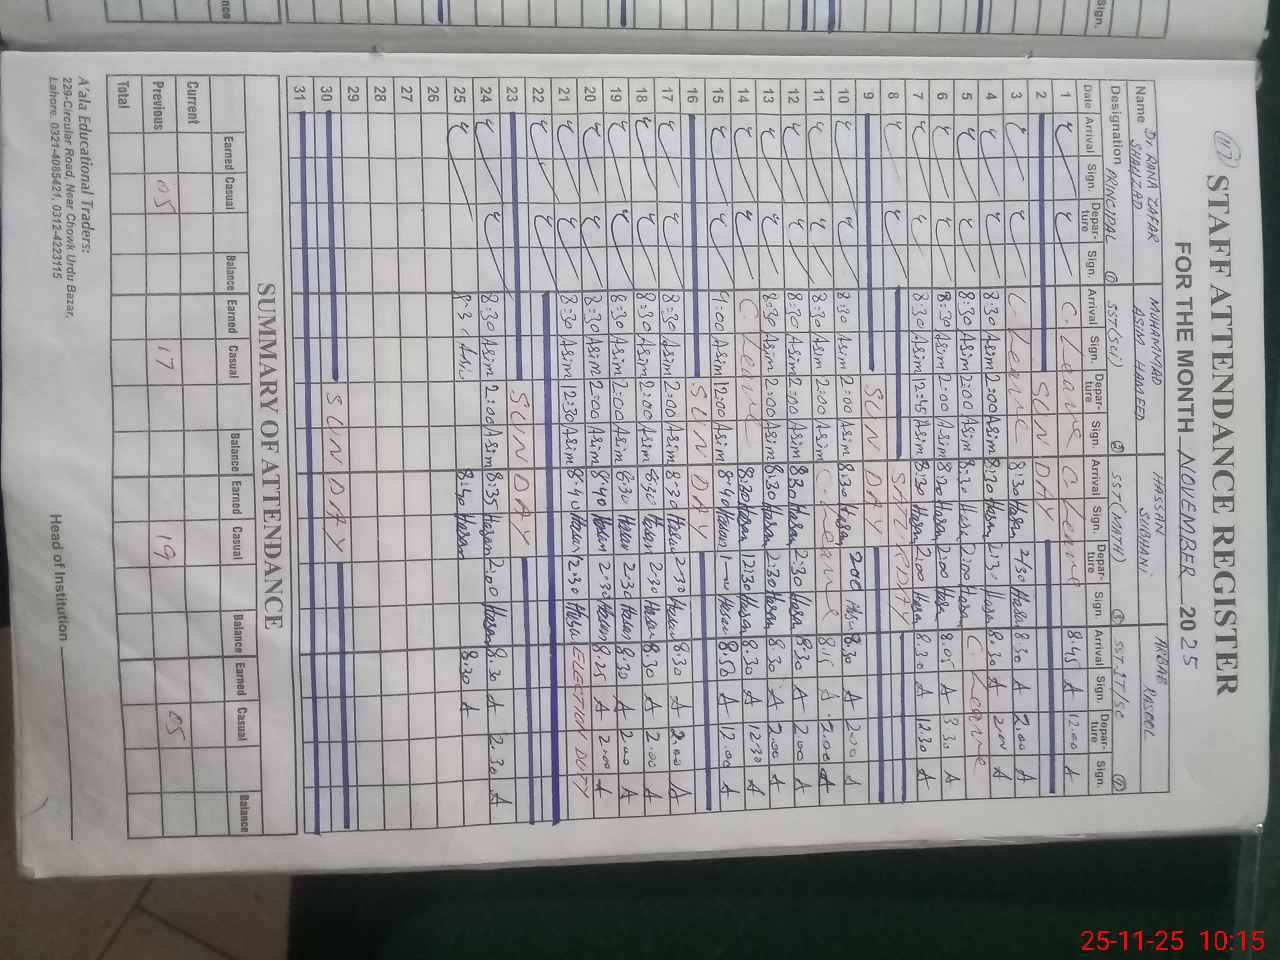 (117) STAFF ATTENDANCE REGISTER
FOR THE MONTH NOVEMBER 2025
Name Dr. RANA ZAFAR SHAHZAD MUHAMMAD ASIM HAMEED HASSAN SUBHANI ARBAB RASOOL
Designation PRINCIPAL ① SST(Sci) ② SST(MATH) SST IT/SC
Date Arrival Sign. Departure Sign. Arrival Sign. Departure Sign. Arrival Sign. Departure Sign. Arrival Sign. Departure Sign.
1 C. Leave C. Leave 8.45 A 12.00 A
2 SUNDAY
3 C. Leave 8:30 Hasan 2:30 Hasan 8.30 A 2.00 A
4 8:30 Asim 2:00 Asim 8:30 Hasan 2:30 Hasan 8.30 A 2.00 A
5 8:30 Asim 2:00 Asim 8:30 Hasan 2:00 Hasan C. Leave
6 8:30 Asim 2:00 Asim 8:30 Hasan 2:00 Hasan 8.05 A 3.30 A
7 8:30 Asim 12:45 Asim 8:30 Hasan 2:00 Hasan 8.30 A 12.30 A
8 SATURDAY
9 SUNDAY
10 8:30 Asim 2:00 Asim 8:30 Hasan 2:00 Hasan 8.30 A 2.00 A
11 8:30 Asim 2:00 Asim C. Leave 8.15 A 2.00 A
12 8:30 Asim 2:00 Asim 8:30 Hasan 2:30 Hasan 8.30 A 2.00 A
13 8:30 Asim 2:00 Asim 8:30 Hasan 2:30 Hasan 8.30 A 2.00 A
14 C. Leave 8:30 Hasan 12:30 Hasan 8.30 A 12.30 A
15 9:00 Asim 12:00 Asim 8:40 Hasan Hasan 8.50 A 12.00 A
16 SUNDAY
17 8:30 Asim 2:00 Asim 8:30 Hasan 2:30 Hasan 8.30 A 2.00 A
18 8:30 Asim 2:00 Asim 8:30 Hasan 2:30 Hasan 8.30 A 2.00 A
19 8:30 Asim 2:00 Asim 8:30 Hasan 2:30 Hasan 8.30 A 2.00 A
20 8:30 Asim 2:00 Asim 8:40 Hasan 2:30 Hasan 8.25 A 2.00 A
21 8:30 Asim 12:30 Asim 8:40 Hasan 12:30 Hasan ELECTION DUTY
22
23 SUNDAY
24 8:30 Asim 2:00 Asim 8:35 Hasan 2:00 Hasan 8.30 A 2.30 A
25 8:3 Asim 8:40 Hasan 8.30 A
26
27
28
29
30 SUNDAY
31
SUMMARY OF ATTENDANCE
Earned Casual Balance Earned Casual Balance Earned Casual Balance Earned Casual Balance
Current
Previous 05 17 19 05
Total
A'ala Educational Traders:
229-Circular Road, Near Chowk Urdu Bazar,
Lahore. 0321-4085421, 0312-4223115
Head of Institution
25-11-25 10:15